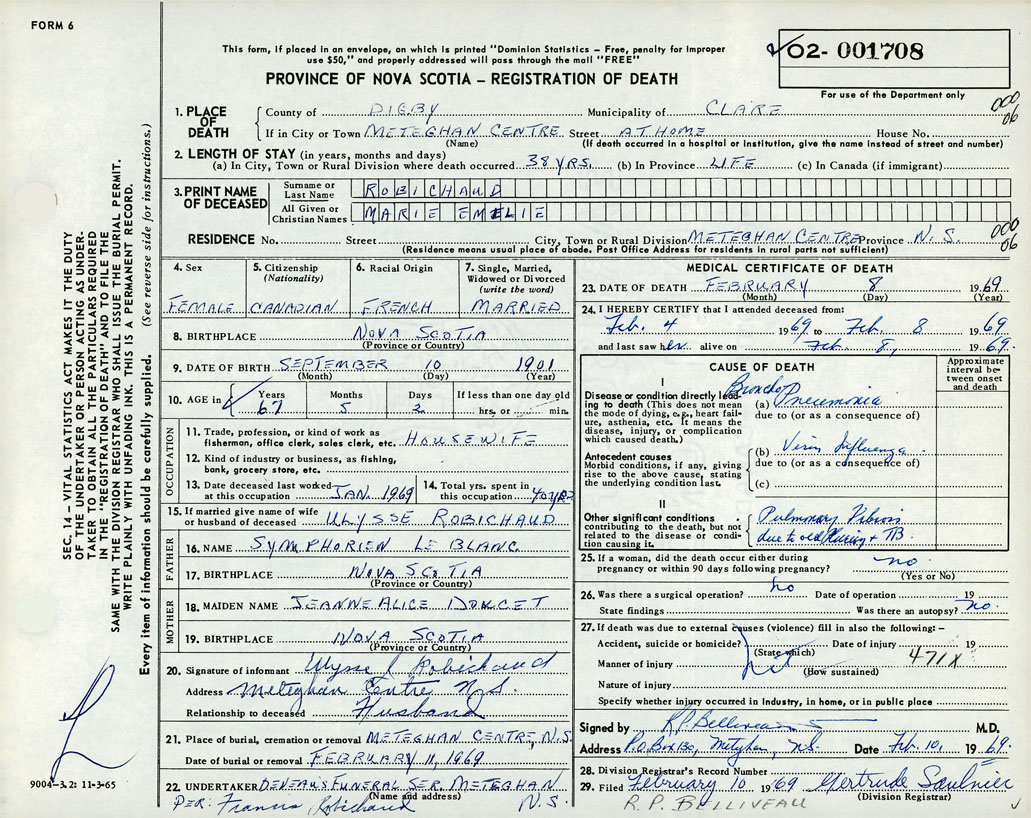 FORM 6
This form, if placed in an envelope, on which is printed "Dominion Statistics – Free, penalty for improper
use $50," and properly addressed will pass through the mail "FREE"
PROVINCE OF NOVA SCOTIA – REGISTRATION OF DEATH
02- 001708
For use of the Department only
000
06
1. PLACE OF DEATH
County of DIGBY Municipality of CLARE
If in City or Town METEGHAN CENTRE Street AT HOME House No.
(Name) (If death occurred in a hospital or institution, give the name instead of street and number)
2. LENGTH OF STAY (in years, months and days)
(a) In City, Town or Rural Division where death occurred 38 YRS. (b) In Province LIFE (c) In Canada (if immigrant)
3. PRINT NAME OF DECEASED
Surname or Last Name ROBICHAUD
All Given or Christian Names MARIE EMELIE
RESIDENCE No. Street City, Town or Rural Division METEGHAN CENTRE Province N.S.
000
06
(Residence means usual place of abode. Post Office Address for residents in rural parts not sufficient)
4. Sex
FEMALE
5. Citizenship
(Nationality)
CANADIAN
6. Racial Origin
FRENCH
7. Single, Married,
Widowed or Divorced
(write the word)
MARRIED
8. BIRTHPLACE NOVA SCOTIA
(Province or Country)
9. DATE OF BIRTH SEPTEMBER 10 1901
(Month) (Day) (Year)
10. AGE in
Years Months Days If less than one day old
67 5 2 hrs. or min.
OCCUPATION
11. Trade, profession, or kind of work as
fisherman, office clerk, sales clerk, etc. HOUSEWIFE
12. Kind of industry or business, as fishing,
bank, grocery store, etc.
13. Date deceased last worked
at this occupation JAN. 1969
14. Total yrs. spent in
this occupation 40 YRS
15. If married give name of wife
or husband of deceased ULYSSE ROBICHAUD
FATHER
16. NAME SYMPHORIEN LE BLANC
17. BIRTHPLACE NOVA SCOTIA
(Province or Country)
MOTHER
18. MAIDEN NAME JEANNE ALICE
19. BIRTHPLACE NOVA SCOTIA
(Province or Country)
20. Signature of informant Ulysse Robichaud
Address Meteghan Centre N.S.
Relationship to deceased Husband
21. Place of burial, cremation or removal METEGHAN CENTRE, N.S.
Date of burial or removal FEBRUARY 11, 1969
22. UNDERTAKER DEVEAU'S FUNERAL SER. METEGHAN
(Name and address)
PER: Francis Robichaud N.S.
MEDICAL CERTIFICATE OF DEATH
23. DATE OF DEATH FEBRUARY 8 1969
(Month) (Day) (Year)
24. I HEREBY CERTIFY that I attended deceased from:
Feb. 4 1969 to Feb. 8 1969
and last saw her alive on Feb. 8, 1969.
CAUSE OF DEATH
Approximate
interval be-
tween onset
and death
I
Disease or condition directly lead-
ing to death (This does not mean
the mode of dying, e.g., heart fail-
ure, asthenia, etc. It means the
disease, injury, or complication
which caused death.)
Broncho
(a) Pneumonia
due to (or as a consequence of)
Antecedent causes
Morbid conditions, if any, giving
rise to the above cause, stating
the underlying condition last.
(b) Virus Influenza
due to (or as a consequence of)
(c)
II
Other significant conditions
contributing to the death, but not
related to the disease or condi-
tion causing it.
Pulmonary Fibrosis
due to old & TB
25. If a woman, did the death occur either during
pregnancy or within 90 days following pregnancy? no
(Yes or No)
26. Was there a surgical operation? no Date of operation 19
State findings Was there an autopsy? no.
27. If death was due to external causes (violence) fill in also the following: –
Accident, suicide or homicide? Date of injury 19
(State which)
471X
Manner of injury
(How sustained)
Nature of injury
Specify whether injury occurred in industry, in home, or in public place
Signed by R.P. Belliveau M.D.
Address P.O. Box 130, Meteghan, N.S. Date Feb. 10, 1969.
28. Division Registrar's Record Number
29. Filed February 10 1969 Gertrude Saulnier
(Division Registrar)
R. P. BELLIVEAU
SEC. 14 – VITAL STATISTICS ACT MAKES IT THE DUTY
OF THE UNDERTAKER OR PERSON ACTING AS UNDER-
TAKER TO OBTAIN ALL THE PARTICULARS REQUIRED
IN THE "REGISTRATION OF DEATH" AND TO FILE THE
SAME WITH THE DIVISION REGISTRAR WHO SHALL ISSUE THE BURIAL PERMIT.
WRITE PLAINLY WITH UNFADING INK. THIS IS A PERMANENT RECORD.
Every item of information should be carefully supplied. (See reverse side for instructions.)
9004-3.2: 11-3-65